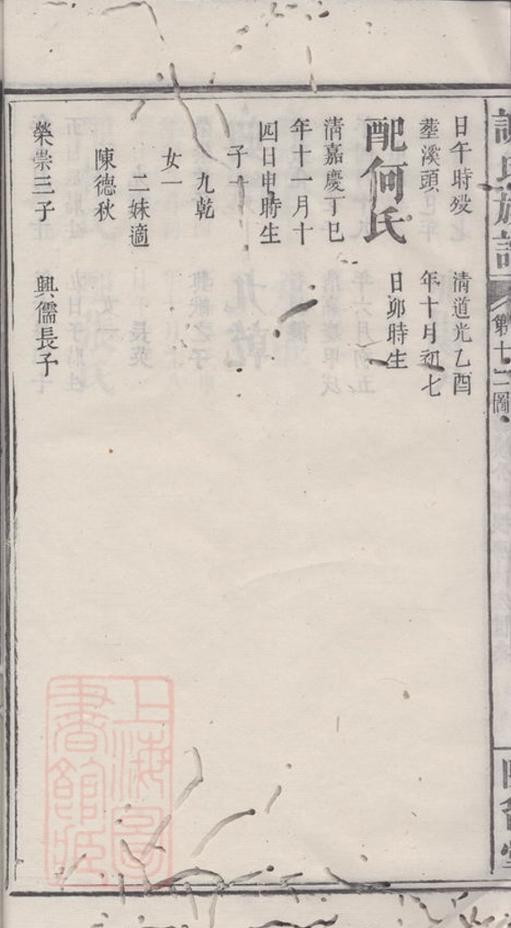 氏族譜
日午時歿
塟溪頭
配何氏
清嘉慶丁巳
年十一月十
四日申時生
子一
九乾
女一
二妹適
陳德秋
榮崇三子
清道光乙酉
年十月初七
日卯時生
興儒長子
上海圖書館藏